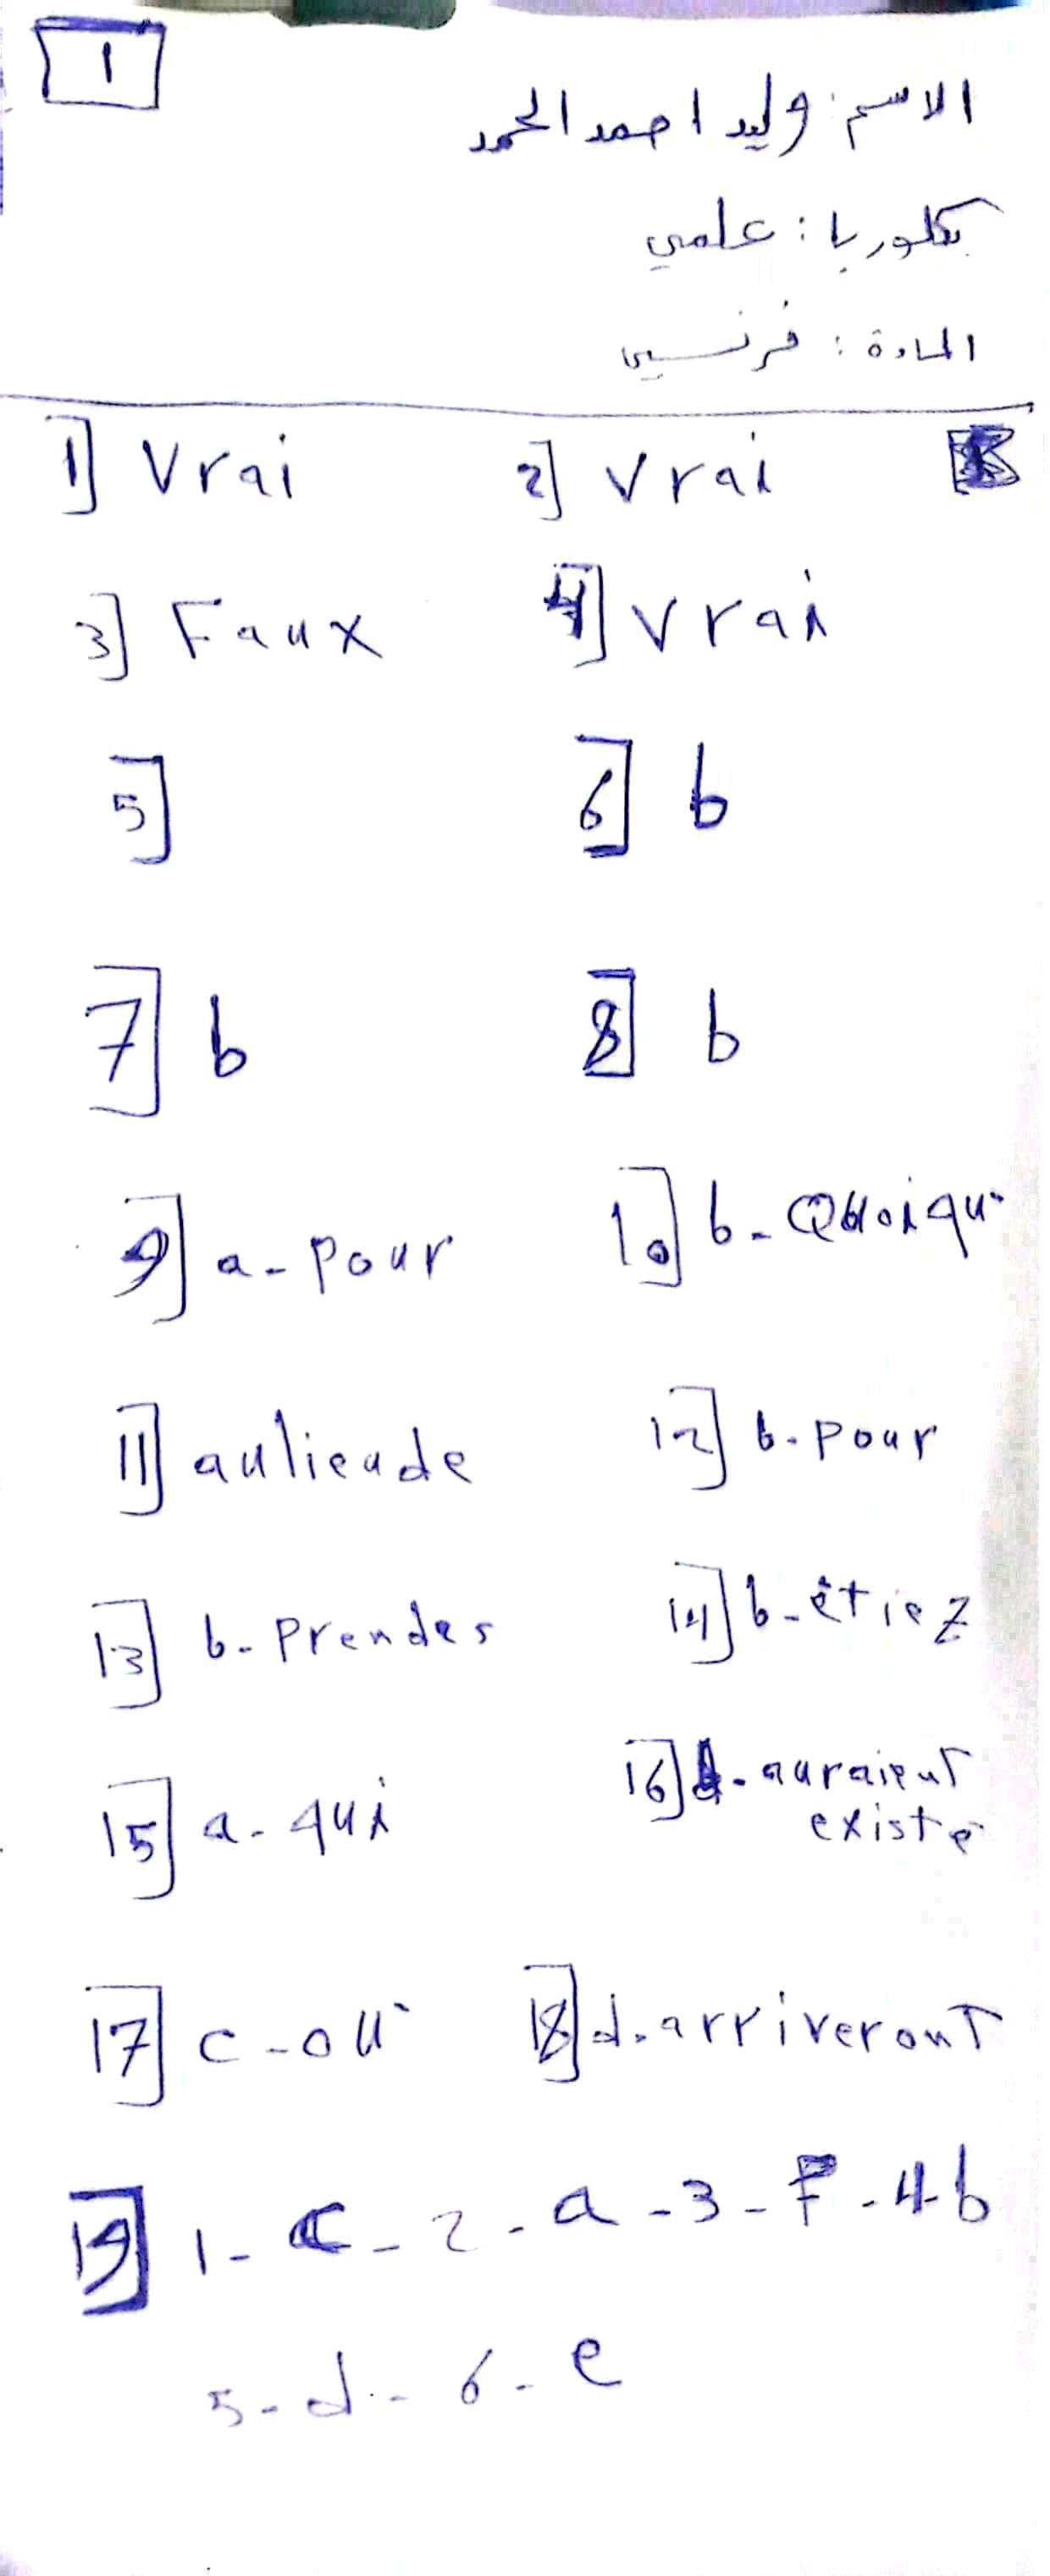 1
الاسم: وليد احمد الحمد
بكلوريا: علمي
المادة: فرنسي
1] Vrai 2] Vrai
3] Faux 4] Vrai
5] 6] b
7] b 8] b
9] a- Pour 10] b- Quoiqu'
11] aulieude 12] b. Pour
13] b- Prendes 14] b- êtiez
15] a- qui 16] - auraient
existé
17] c - où 18] d. arriveront
19] 1- c - 2 - a - 3 - F - 4- b
5- d - 6 - e